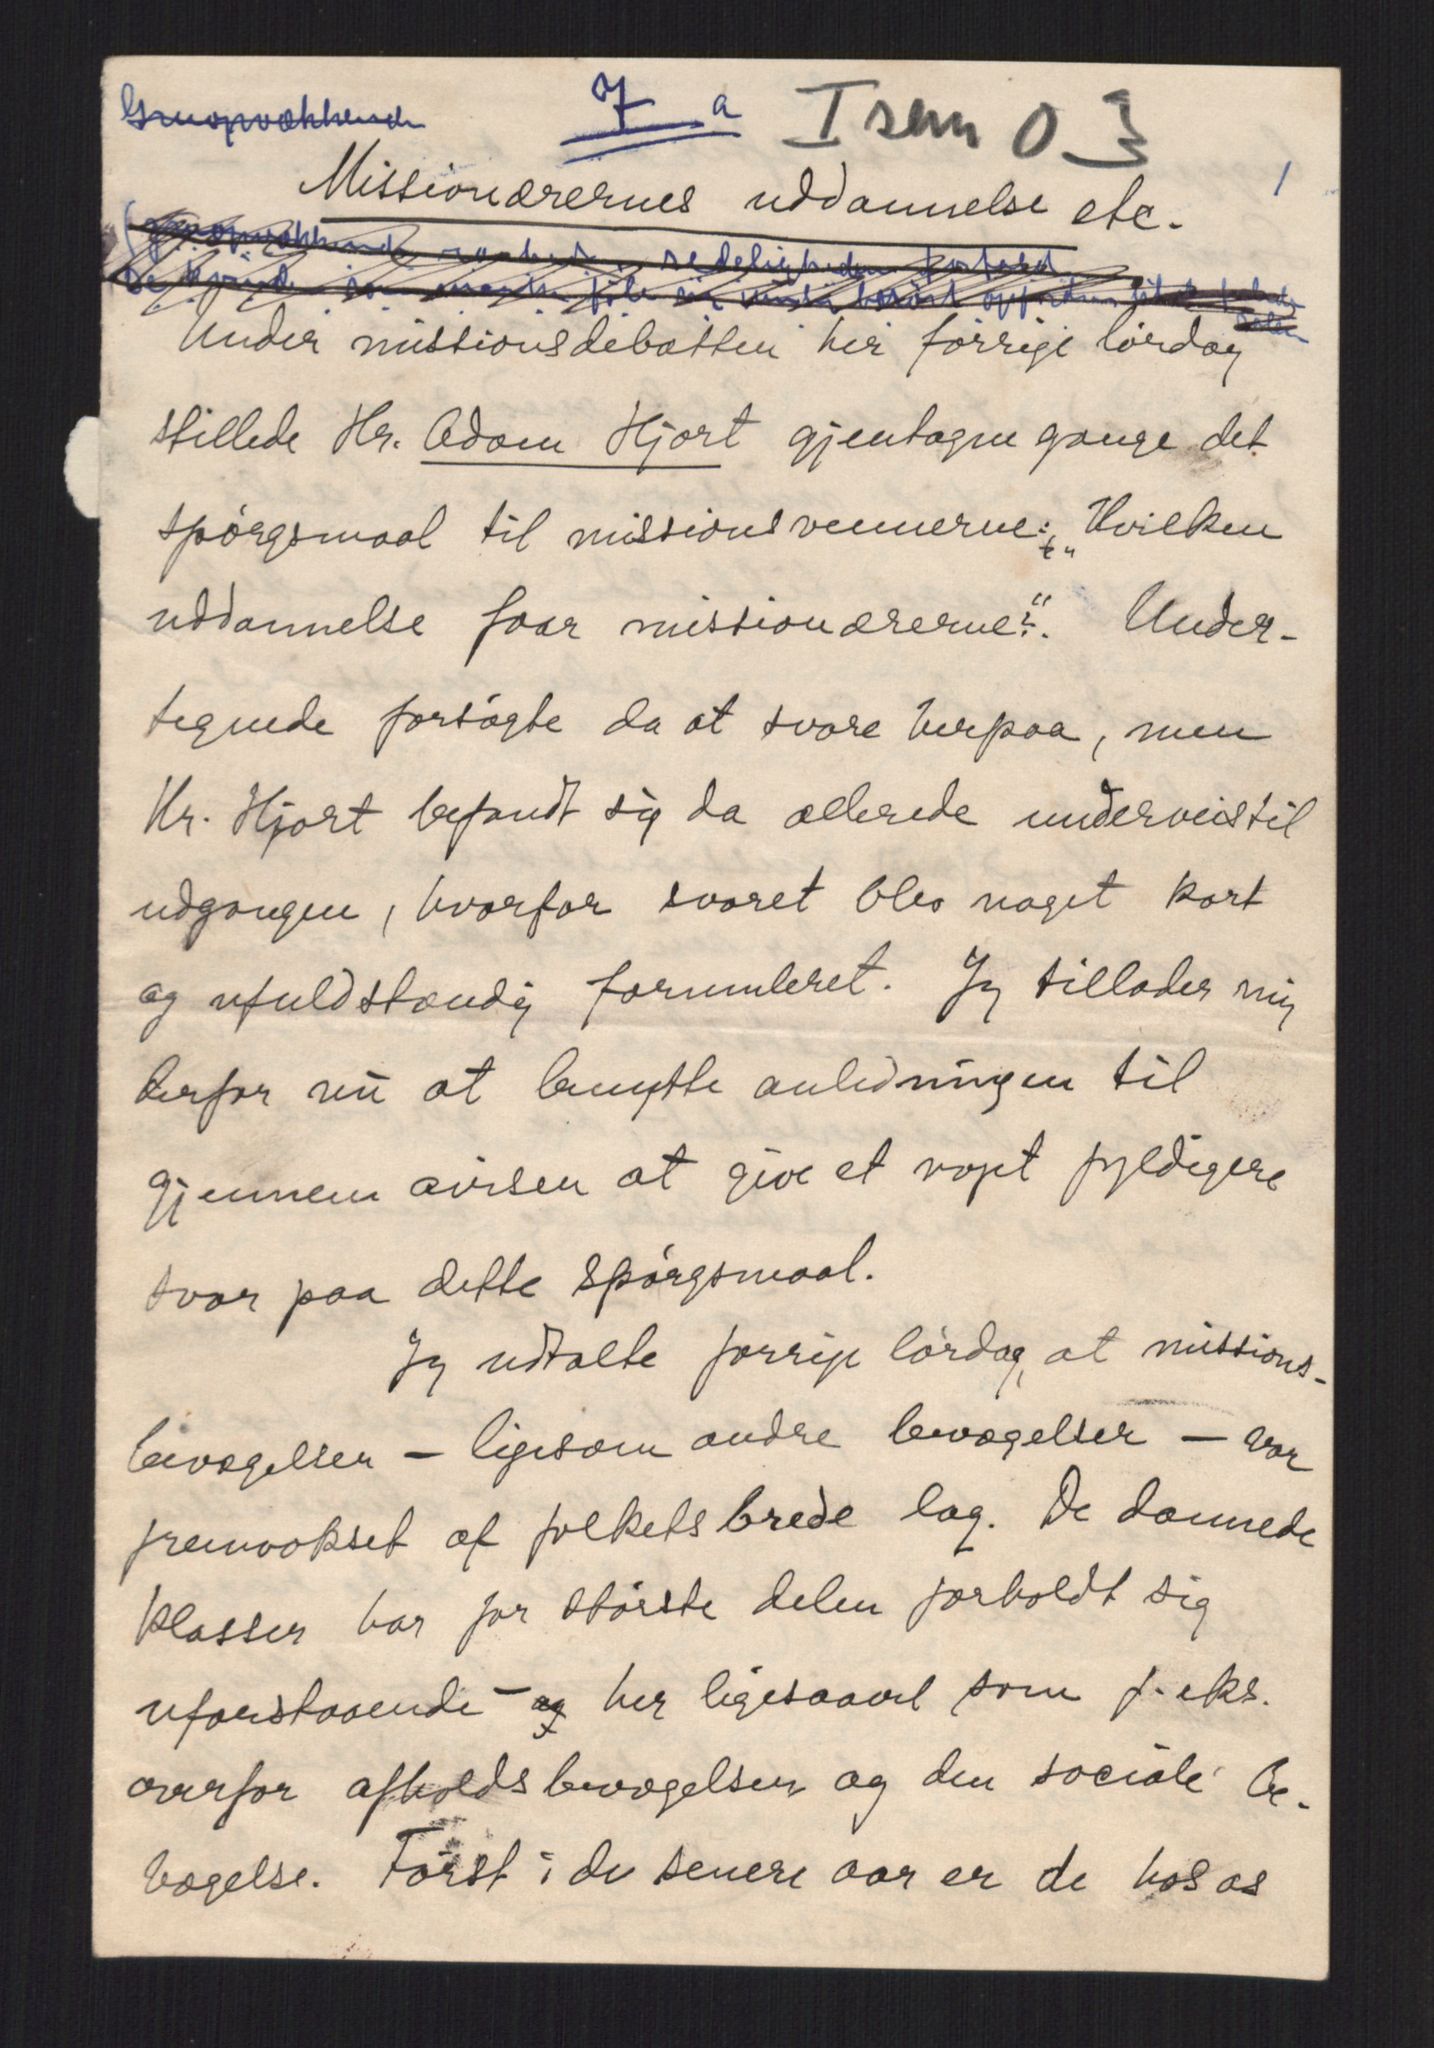 Gruopvækkende
7 a I sem 03
1
Missionærernes uddannelse etc.
Under missionsdebatten her forrige lørdag
stillede Hr. Adam Hjort gjentagne gange det
spørgsmaal til missionsvennerne: „Hvilken
uddannelse faar missionærerne?". Under-
tegnede forsøgte da at svare herpaa, men
Hr. Hjort befandt sig da allerede underveis til
udgangen, hvorfor svaret blev noget kort
og ufuldstændig formuleret. Jeg tillader mig
derfor nu at benytte anledningen til
gjennem avisen at give et noget fyldigere
svar paa dette spørgsmaal.
Jeg udtalte forrige lørdag, at missions-
bevægelsen – ligesom andre bevægelser – var
fremvokset af folkets brede lag. De dannede
klasser har for største delen forholdt sig
uforstaaende – og her ligesaavel som f. eks.
overfor afholdsbevægelsen og den sociale be-
vægelse. Først i de senere aar er de hos os